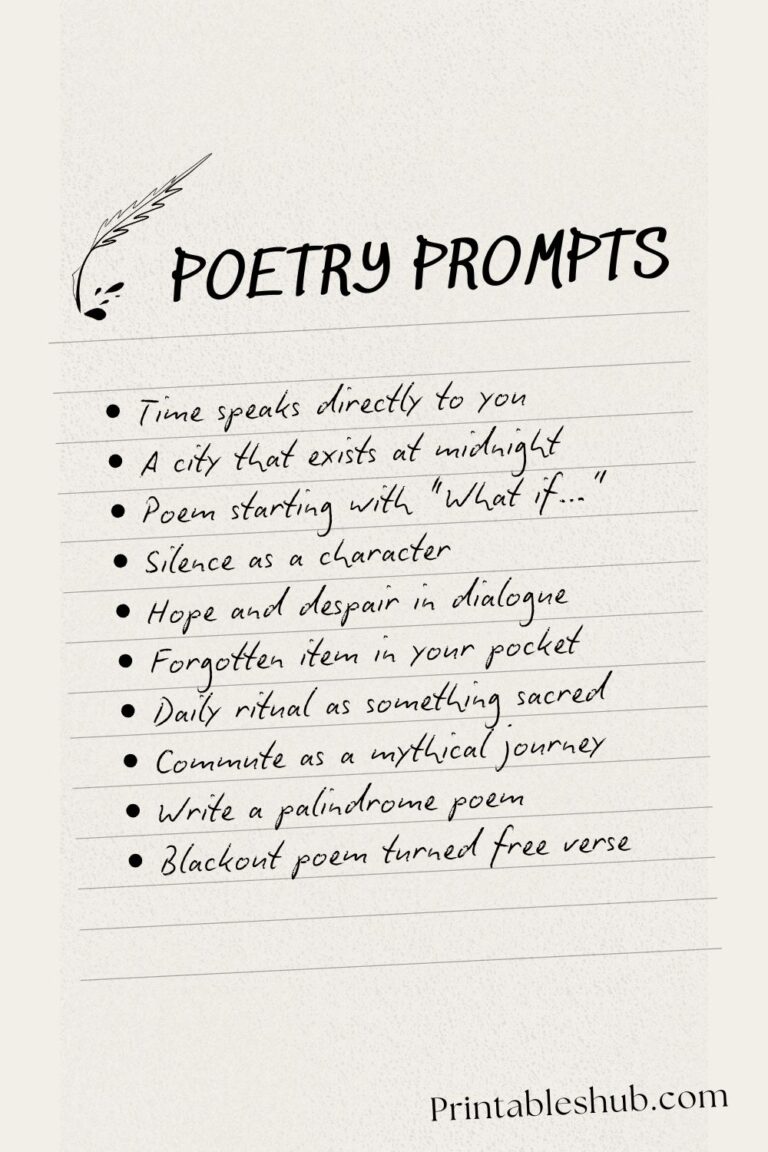 POETRY PROMPTS
• Time speaks directly to you
• A city that exists at midnight
• Poem starting with "What if..."
• Silence as a character
• Hope and despair in dialogue
• Forgotten item in your pocket
• Daily ritual as something sacred
• Commute as a mythical journey
• Write a palindrome poem
• Blackout poem turned free verse
Printableshub.com